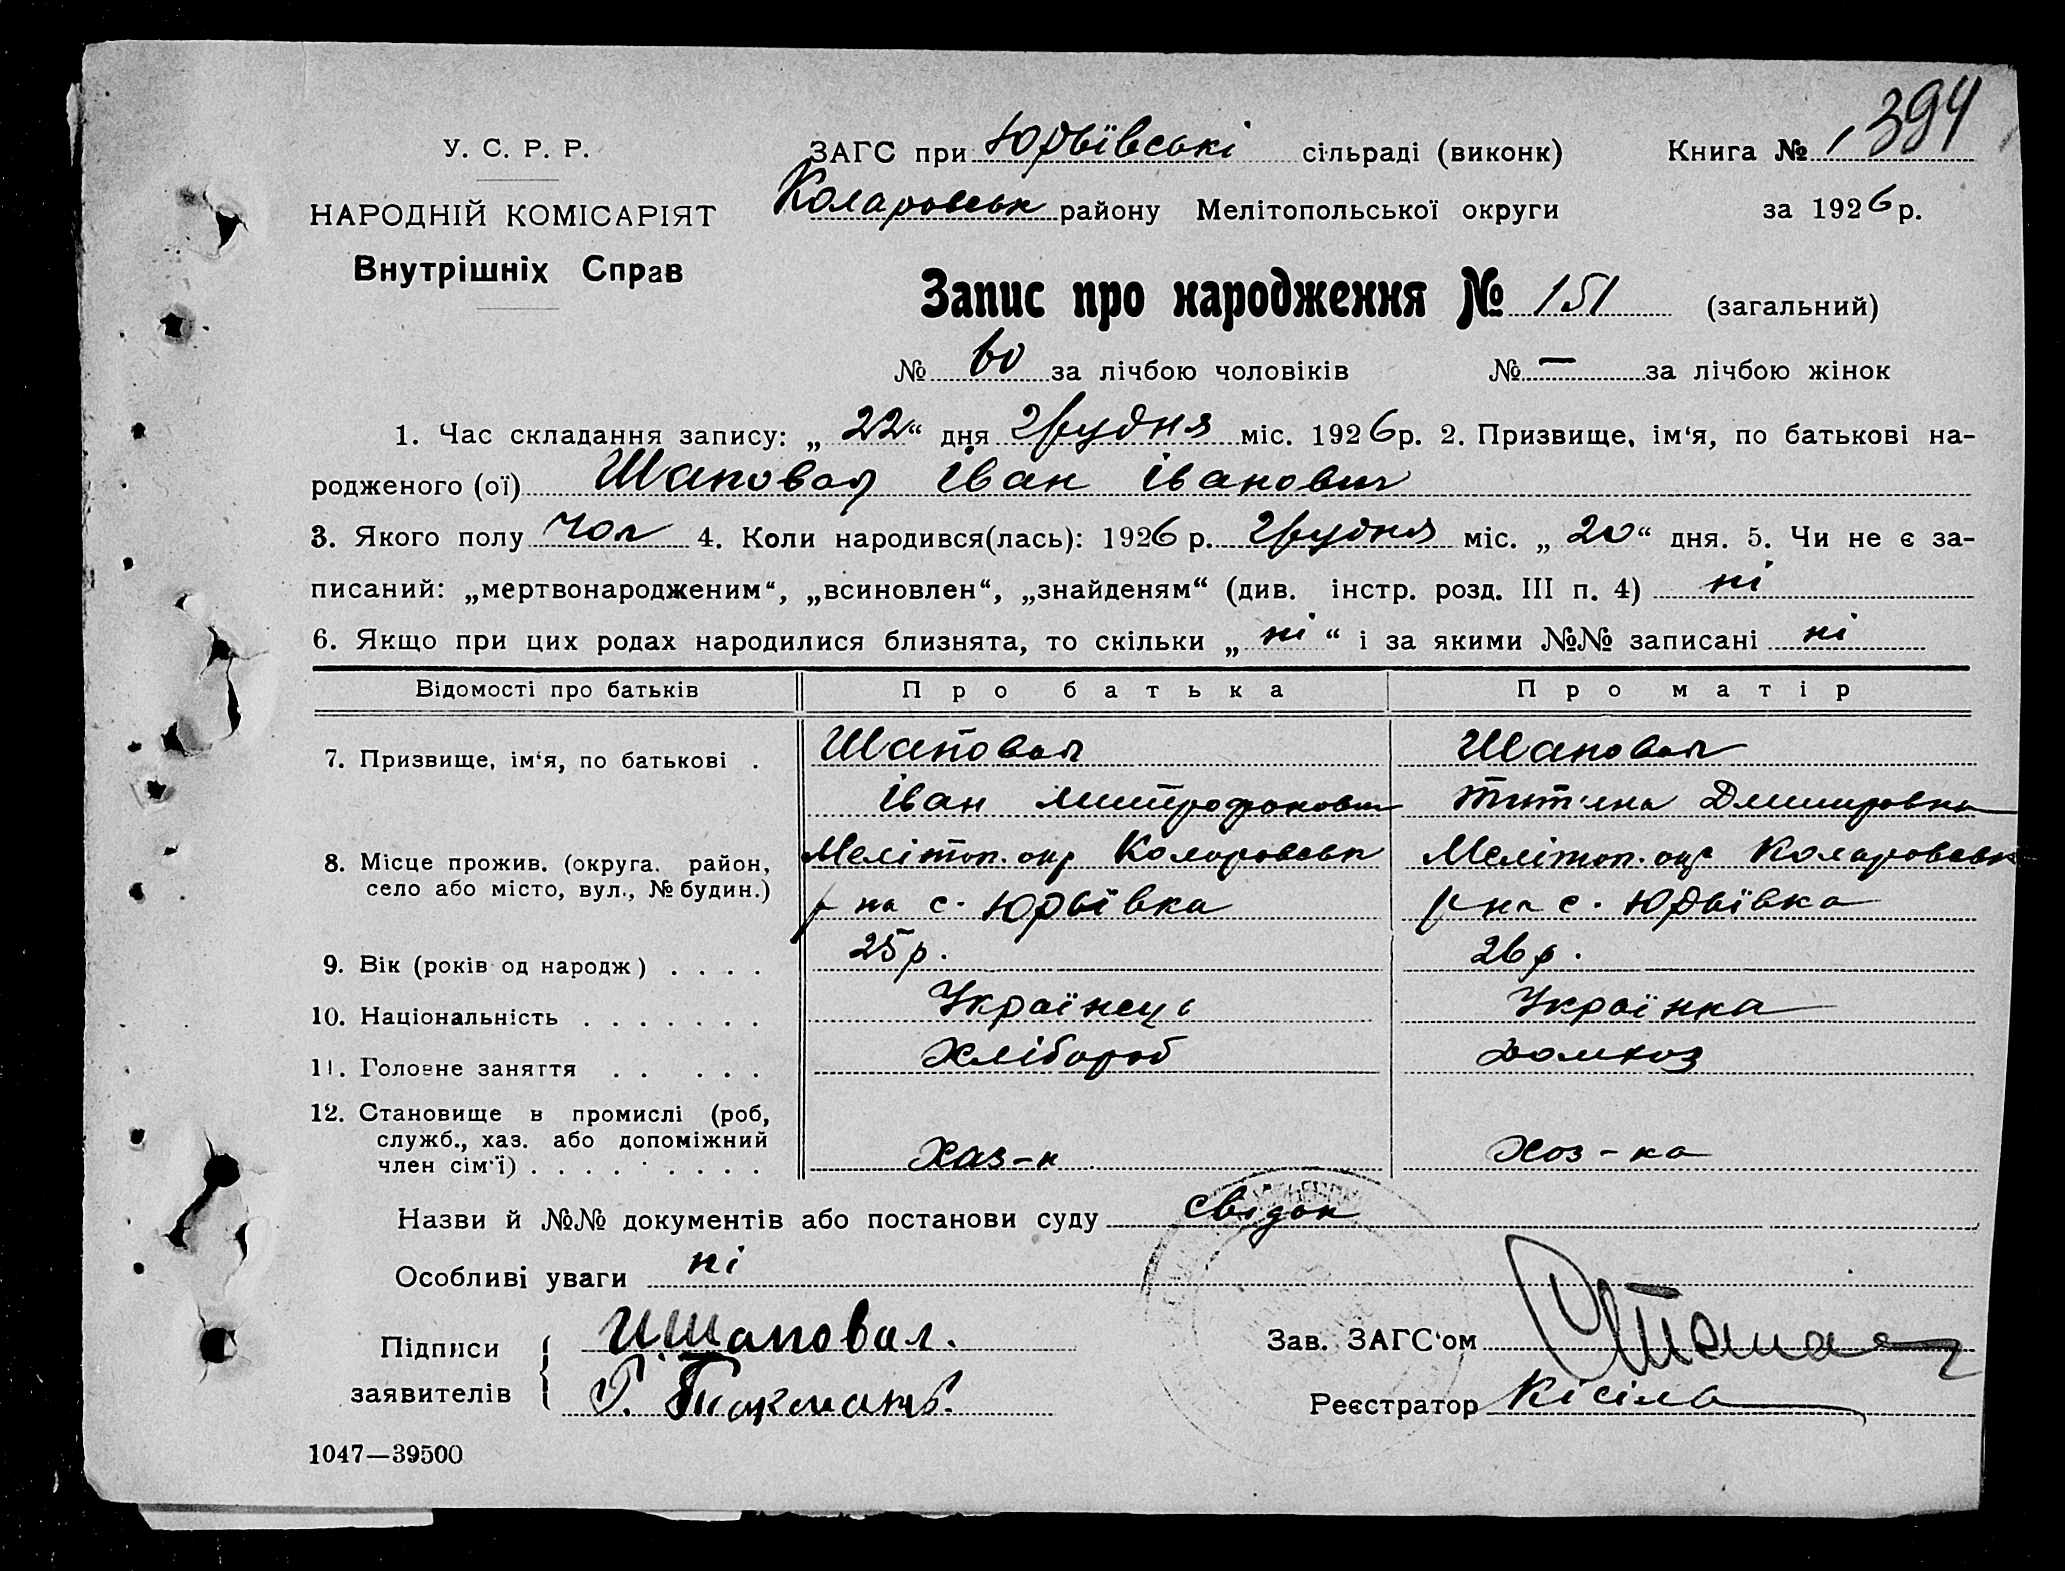 394
У. С. Р. Р.
ЗАГС при Юрьївські сільраді (виконк) Книга №
НАРОДНІЙ КОМІСАРІЯТ Коларовськ району Мелітопольської округи за 1926 р.
Внутрішніх Справ
Запис про народження № 151 (загальний)
№ 60 за лічбою чоловіків № — за лічбою жінок
1. Час складання запису: „22“ дня Грудня міс. 1926 р. 2. Призвище, ім‘я, по батькові на-
родженого (ої) Шаповал Іван Іванович
3. Якого полу чол 4. Коли народився(лась): 1926 р. Грудня міс. „20“ дня. 5. Чи не є за-
писаний: „мертвонародженим“, „всиновлен“, „знайденям“ (див. інстр. розд. III п. 4) ні
6. Якщо при цих родах народилися близнята, то скільки „ні“ і за якими №№ записані ні
Відомості про батьків Про батька Про матір
7. Призвище, ім‘я, по батькові . Шаповал Шаповал
Іван Митрофанович Тит'яна Дмитровна
8. Місце прожив. (округа, район, Мелітоп. окр Коларовськ Мелітоп. окр Коларовськ
село або місто, вул., № будин.) р на с. Юрьївка р на с. Юрьївка
9. Вік (років од народж) . . . . 25 р. 26 р.
10. Національність . . . . . . . Українець Українка
11. Головне заняття . . . . . Хлібороб домхоз
12. Становище в промислі (роб,
служб., хаз. або допоміжний
член сім‘ї) . . . . . . . . . . Хаз-н Хоз-ка
Назви й №№ документів або постанови суду свідок
Особливі уваги ні
Підписи И Шаповал. Зав. ЗАГС‘ом
заявителів Г. Реєстратор Кісіль
1047—39500